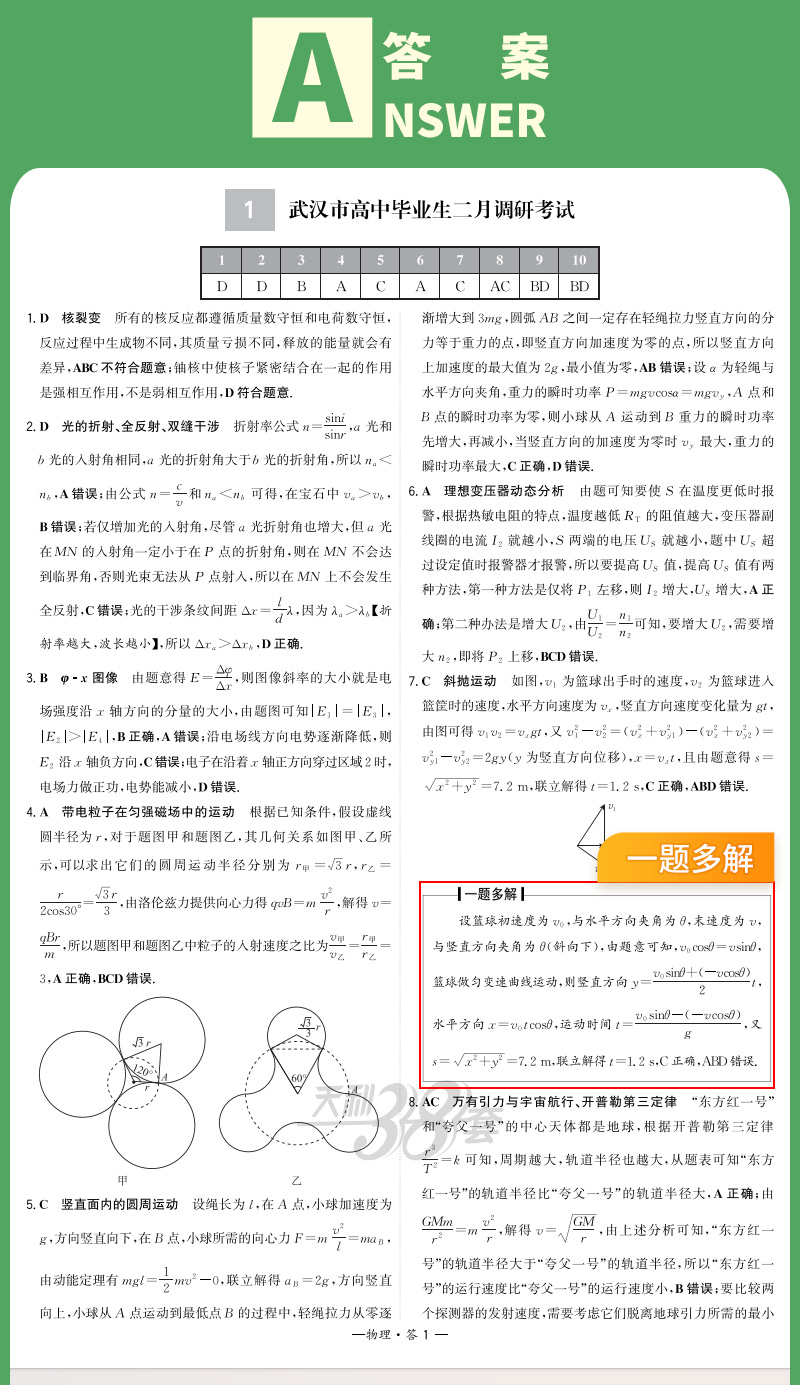 A
答 案
NSWER
1 武汉市高中毕业生二月调研考试
1 2 3 4 5 6 7 8 9 10
D D B A C A C AC BD BD
1. D 核裂变 所有的核反应都遵循质量数守恒和电荷数守恒,
反应过程中生成物不同,其质量亏损不同,释放的能量就会有
差异,ABC不符合题意;铀核中使核子紧密结合在一起的作用
是强相互作用,不是弱相互作用,D符合题意.
2. D 光的折射、全反射、双缝干涉 折射率公式 n=sini/sinr,a 光和
b 光的入射角相同,a 光的折射角大于 b 光的折射角,所以 nₐ<
n_b,A错误;由公式 n=c/v 和 nₐ<n_b 可得,在宝石中 vₐ>v_b,
B错误;若仅增加光的入射角,尽管 a 光折射角也增大,但 a 光
在 MN 的入射角一定小于在 P 点的折射角,则在 MN 不会达
到临界角,否则光束无法从 P 点射入,所以在 MN 上不会发生
全反射,C错误;光的干涉条纹间距 Δx=l/d λ,因为 λₐ>λ_b【折
射率越大,波长越小】,所以 Δxₐ>Δx_b,D正确.
3. B φ-x 图像 由题意得 E=Δφ/Δx,则图像斜率的大小就是电
场强度沿 x 轴方向的分量的大小,由题图可知|E₁|=|E₃|,
|E₂|>|E₄|,B正确,A错误;沿电场线方向电势逐渐降低,则
E₂ 沿 x 轴负方向,C错误;电子在沿着 x 轴正方向穿过区域2时,
电场力做正功,电势能减小,D错误.
4. A 带电粒子在匀强磁场中的运动 根据已知条件,假设虚线
圆半径为 r,对于题图甲和题图乙,其几何关系如图甲、乙所
示,可以求出它们的圆周运动半径分别为 r甲=√3 r,r乙=
r/2cos30°=√3r/3,由洛伦兹力提供向心力得 qvB=m v²/r,解得 v=
qBr/m,所以题图甲和题图乙中粒子的入射速度之比为 v甲/v乙=r甲/r乙=
3,A正确,BCD错误.
√3 r
120°
r
A
甲
√3/3 r
60°
A
乙
天利38套
5. C 竖直面内的圆周运动 设绳长为 l,在 A 点,小球加速度为
g,方向竖直向下,在 B 点,小球所需的向心力 F=m v²/l=ma_B,
由动能定理有 mgl=1/2 mv²-0,联立解得 a_B=2g,方向竖直
向上,小球从 A 点运动到最低点 B 的过程中,轻绳拉力从零逐
渐增大到 3mg,圆弧 AB 之间一定存在轻绳拉力竖直方向的分
力等于重力的点,即竖直方向加速度为零的点,所以竖直方向
上加速度的最大值为 2g,最小值为零,AB错误;设 α 为轻绳与
水平方向夹角,重力的瞬时功率 P=mgvcosα=mgv_y,A 点和
B 点的瞬时功率为零,则小球从 A 运动到 B 重力的瞬时功率
先增大,再减小,当竖直方向的加速度为零时 v_y 最大,重力的
瞬时功率最大,C正确,D错误.
6. A 理想变压器动态分析 由题可知要使 S 在温度更低时报
警,根据热敏电阻的特点,温度越低 R_T 的阻值越大,变压器副
线圈的电流 I₂ 就越小,S 两端的电压 U_S 就越小,题中 U_S 超
过设定值时报警器才报警,所以要提高 U_S 值,提高 U_S 值有两
种方法,第一种方法是仅将 P₁ 左移,则 I₂ 增大,U_S 增大,A正
确;第二种办法是增大 U₂,由U₁/U₂=n₁/n₂可知,要增大 U₂,需要增
大 n₂,即将 P₂ 上移,BCD错误.
7. C 斜抛运动 如图,v₁ 为篮球出手时的速度,v₂ 为篮球进入
篮筐时的速度,水平方向速度为 vₓ,竖直方向速度变化量为 gt,
由图可得 v₁v₂=vₓgt,又 v₁²-v₂²=(vₓ²+v_y1²)-(vₓ²+v_y2²)=
v_y1²-v_y2²=2gy(y 为竖直方向位移),x=vₓt,且由题意得 s=
√x²+y²=7.2 m,联立解得 t=1.2 s,C正确,ABD错误.
v₁
一题多解
一题多解
设篮球初速度为 v₀,与水平方向夹角为 θ,末速度为 v,
与竖直方向夹角为 θ(斜向下),由题意可知,v₀cosθ=vsinθ,
篮球做匀变速曲线运动,则竖直方向 y=v₀sinθ+(-vcosθ)/2 t,
水平方向 x=v₀tcosθ,运动时间 t=v₀sinθ-(-vcosθ)/g,又
s=√x²+y²=7.2 m,联立解得 t=1.2 s,C正确,ABD错误.
8. AC 万有引力与宇宙航行、开普勒第三定律 “东方红一号”
和“夸父一号”的中心天体都是地球,根据开普勒第三定律
r³/T²=k 可知,周期越大,轨道半径也越大,从题表可知“东方
红一号”的轨道半径比“夸父一号”的轨道半径大,A正确;由
GMm/r²=m v²/r,解得 v=√GM/r,由上述分析可知,“东方红一
号”的轨道半径大于“夸父一号”的轨道半径,所以“东方红一
号”的运行速度比“夸父一号”的运行速度小,B错误;要比较两
个探测器的发射速度,需要考虑它们脱离地球引力所需的最小
—物理·答 1—